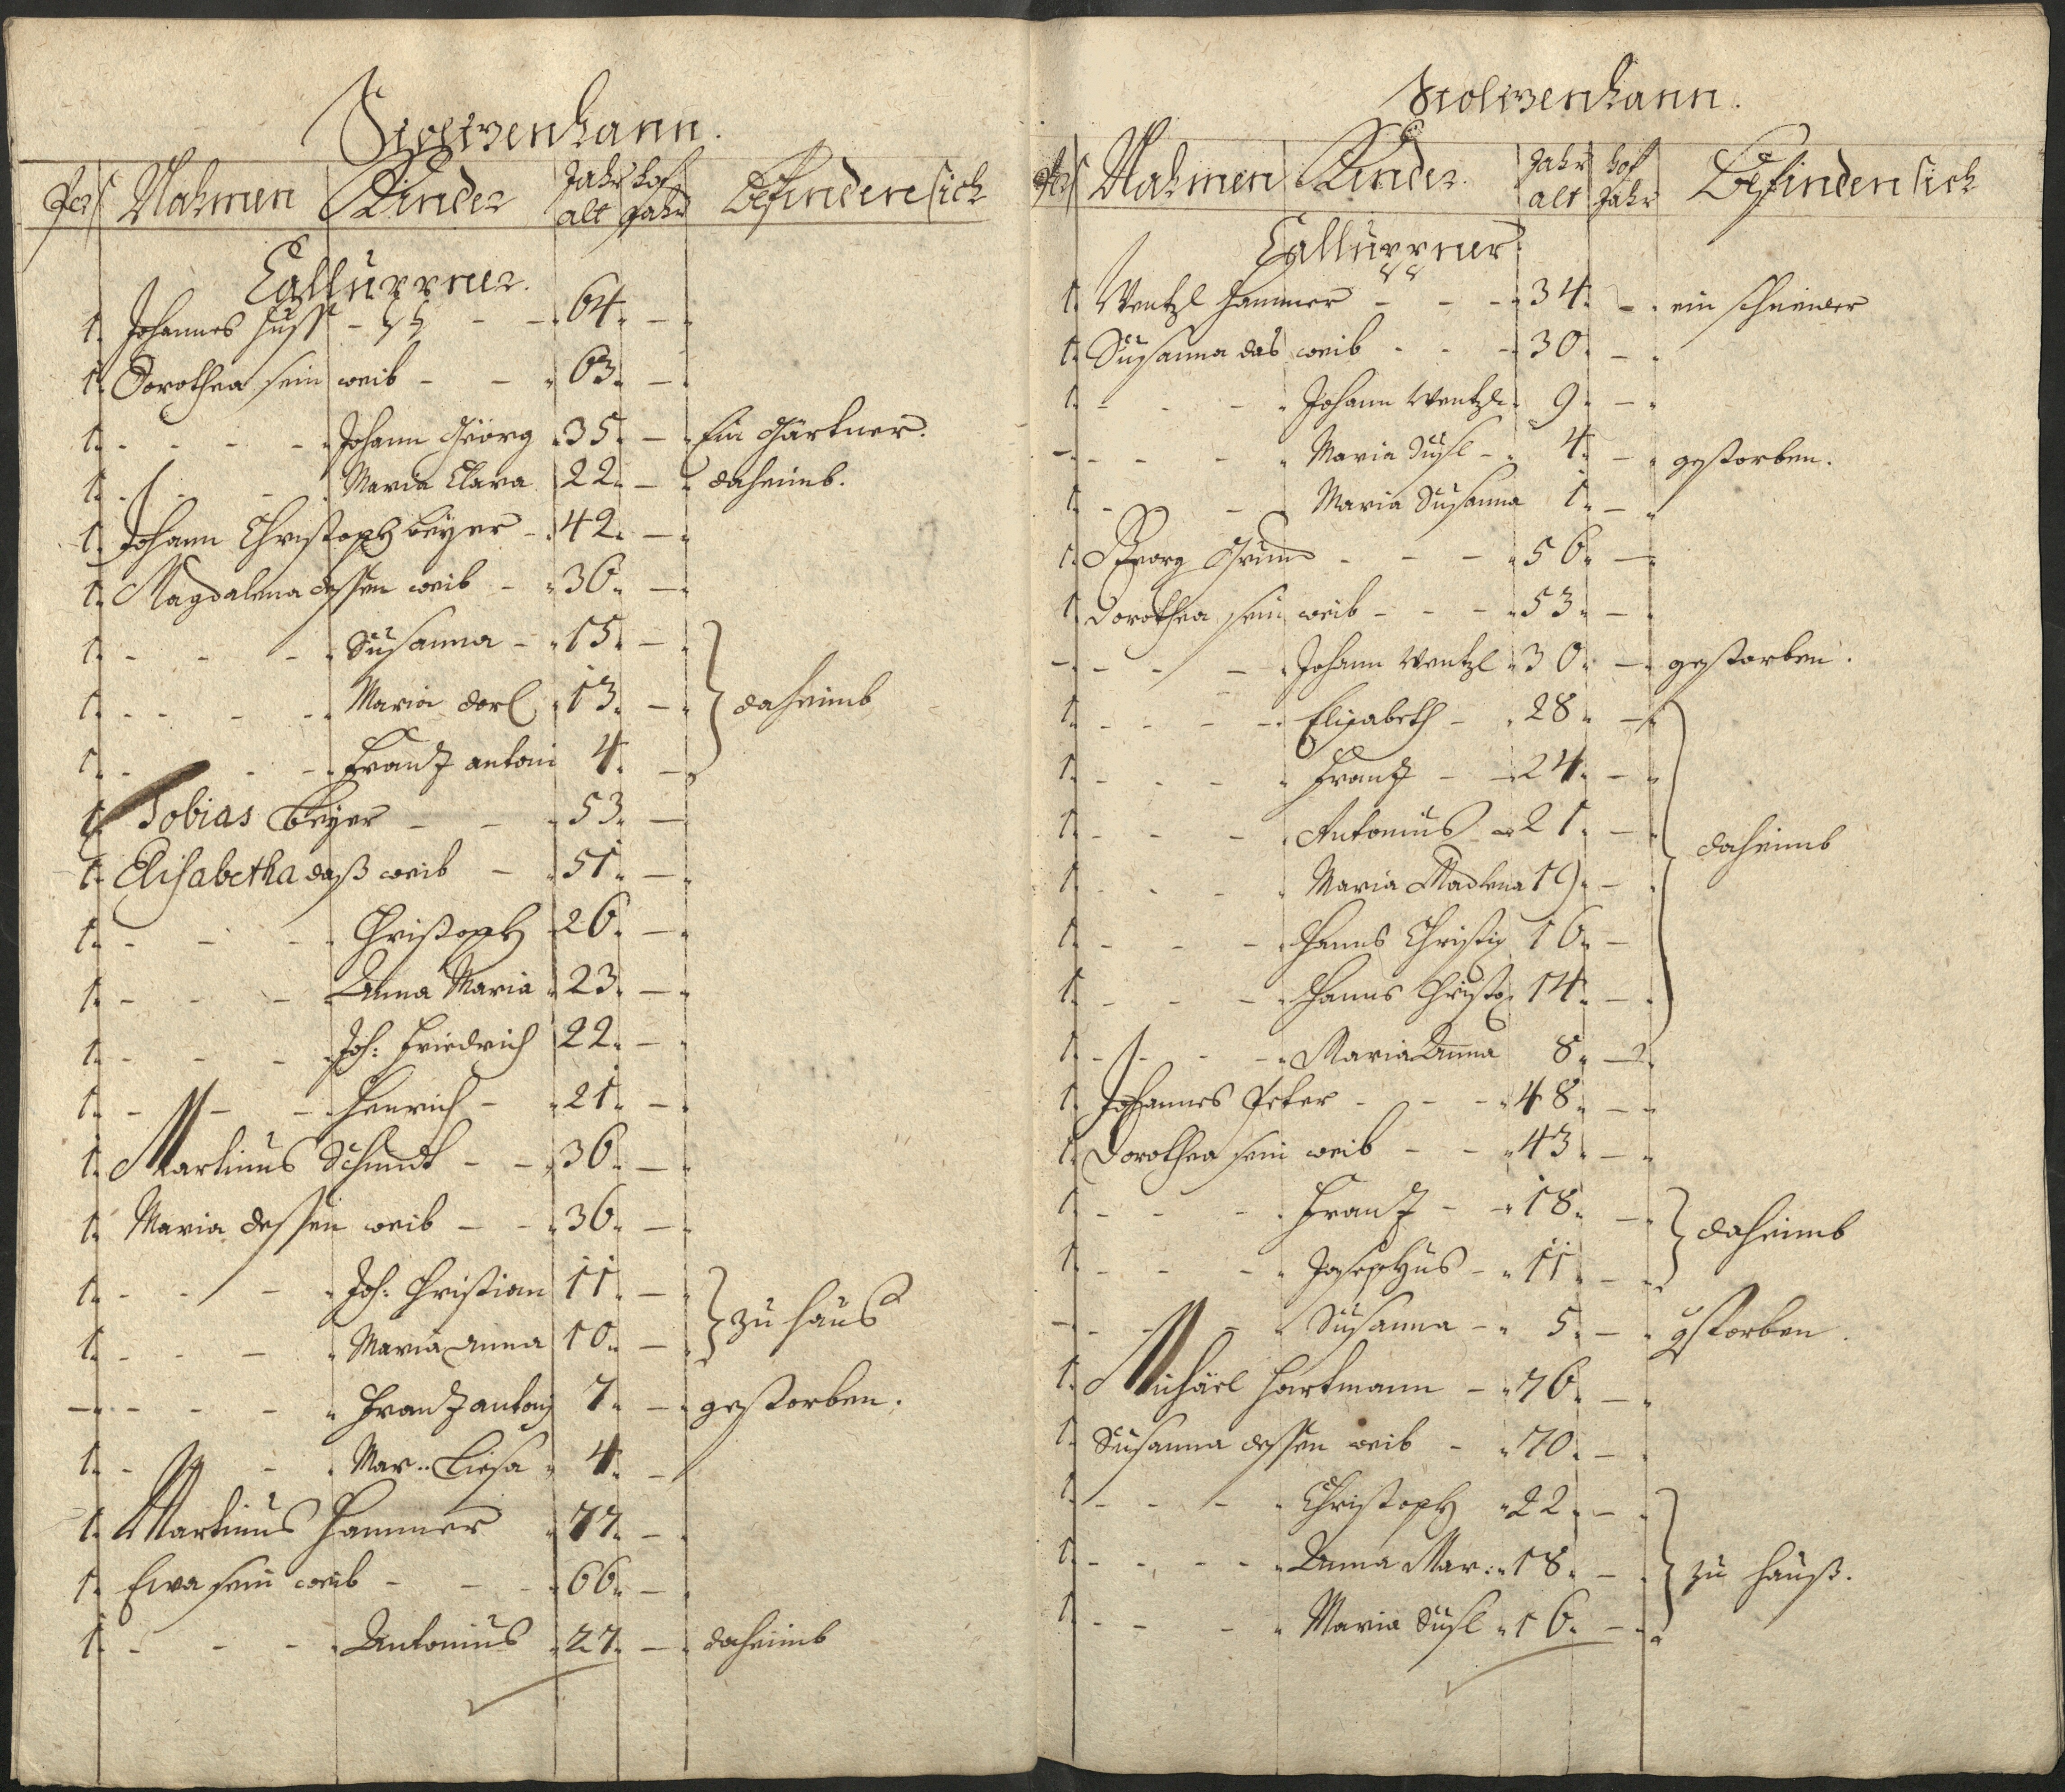 Stolwenhann.
Pers Nahmen Kinder Jahr alt hof Jahr Befinden sich
1. Johannes Huss - - - 64. -
1. Dorothea sein weib - - 63. -
1. - - - - Johann Georg 35. - Ein Gärtner.
1. - - - Maria Clara 22. - daheimb.
1. Johann Christoph beÿer - 42. -
1. Magdalena dessen weib - 36. -
1. - - - Susanna - 15. -
1. - - - - Maria Dorl 13. - daheimb
1. - - - Frantz antoni 4. -
1. Tobias Beÿer - - 53. -
1. Elisabetha daß weib - 51. -
1. - - - Christoph 26. -
1. - - - Anna Maria 23. -
1. - - - Joh: Friedrich 22. -
1. - - - Henrich - 21. -
1. Martinus Schmidt - - 36. -
1. Maria dessen weib - - 36. -
1. - - - Joh: Christian 11. -
1. - - - Maria Anna 10. - zu haus
- - - - - Frantz antoni 7. - gestorben.
1. - - - Mar.. Liesa 4. -
1. Martinus Hammer 77. -
1. Ewa sein weib - - - 66. -
1. - - - Antonius 27. - daheimb
Stolwenhann.
Pers Nahmen Kinder. Jahr alt hof Jahr Befinden sich
1. Wentzl Hammer - - - 34. - ein schneider
1. Susanna das weib - - - 30. -
1. - - - Johann Wentzl 9. -
- - - - Maria Susl - 4. - gestorben.
1. - - - Maria Susanna 1. -
1. Georg Grund - - - 56. -
1. Dorothea sein weib - - - 53. -
- - - - Johann Wentzl 30. - gestorben.
1. - - - - Elisabeth - 28. -
1. - - - Frantz - - 24. -
1. - - - Antonius - 21. - daheimb
1. - - - Maria Madlena 19. -
1. - - - Hanns Christig 16. -
1. - - - Hanns Christo 14. -
1. - - - - Maria Anna 8. -
1. Johannes Peter - - - 48. -
1. Dorothea sein weib - - 43. -
1. - - - Frantz - - 18. -
1. - - - Josephus - 11. - daheimb
- - - - Susanna - 5. - gstorben.
1. Michäel Hartmann - 76. -
1. Susanna dessen weib - 70. -
1. - - - Christoph 22. -
1. - - - - Anna Mar: 18. - zu hauß.
1. - - - Maria Susl 16. -